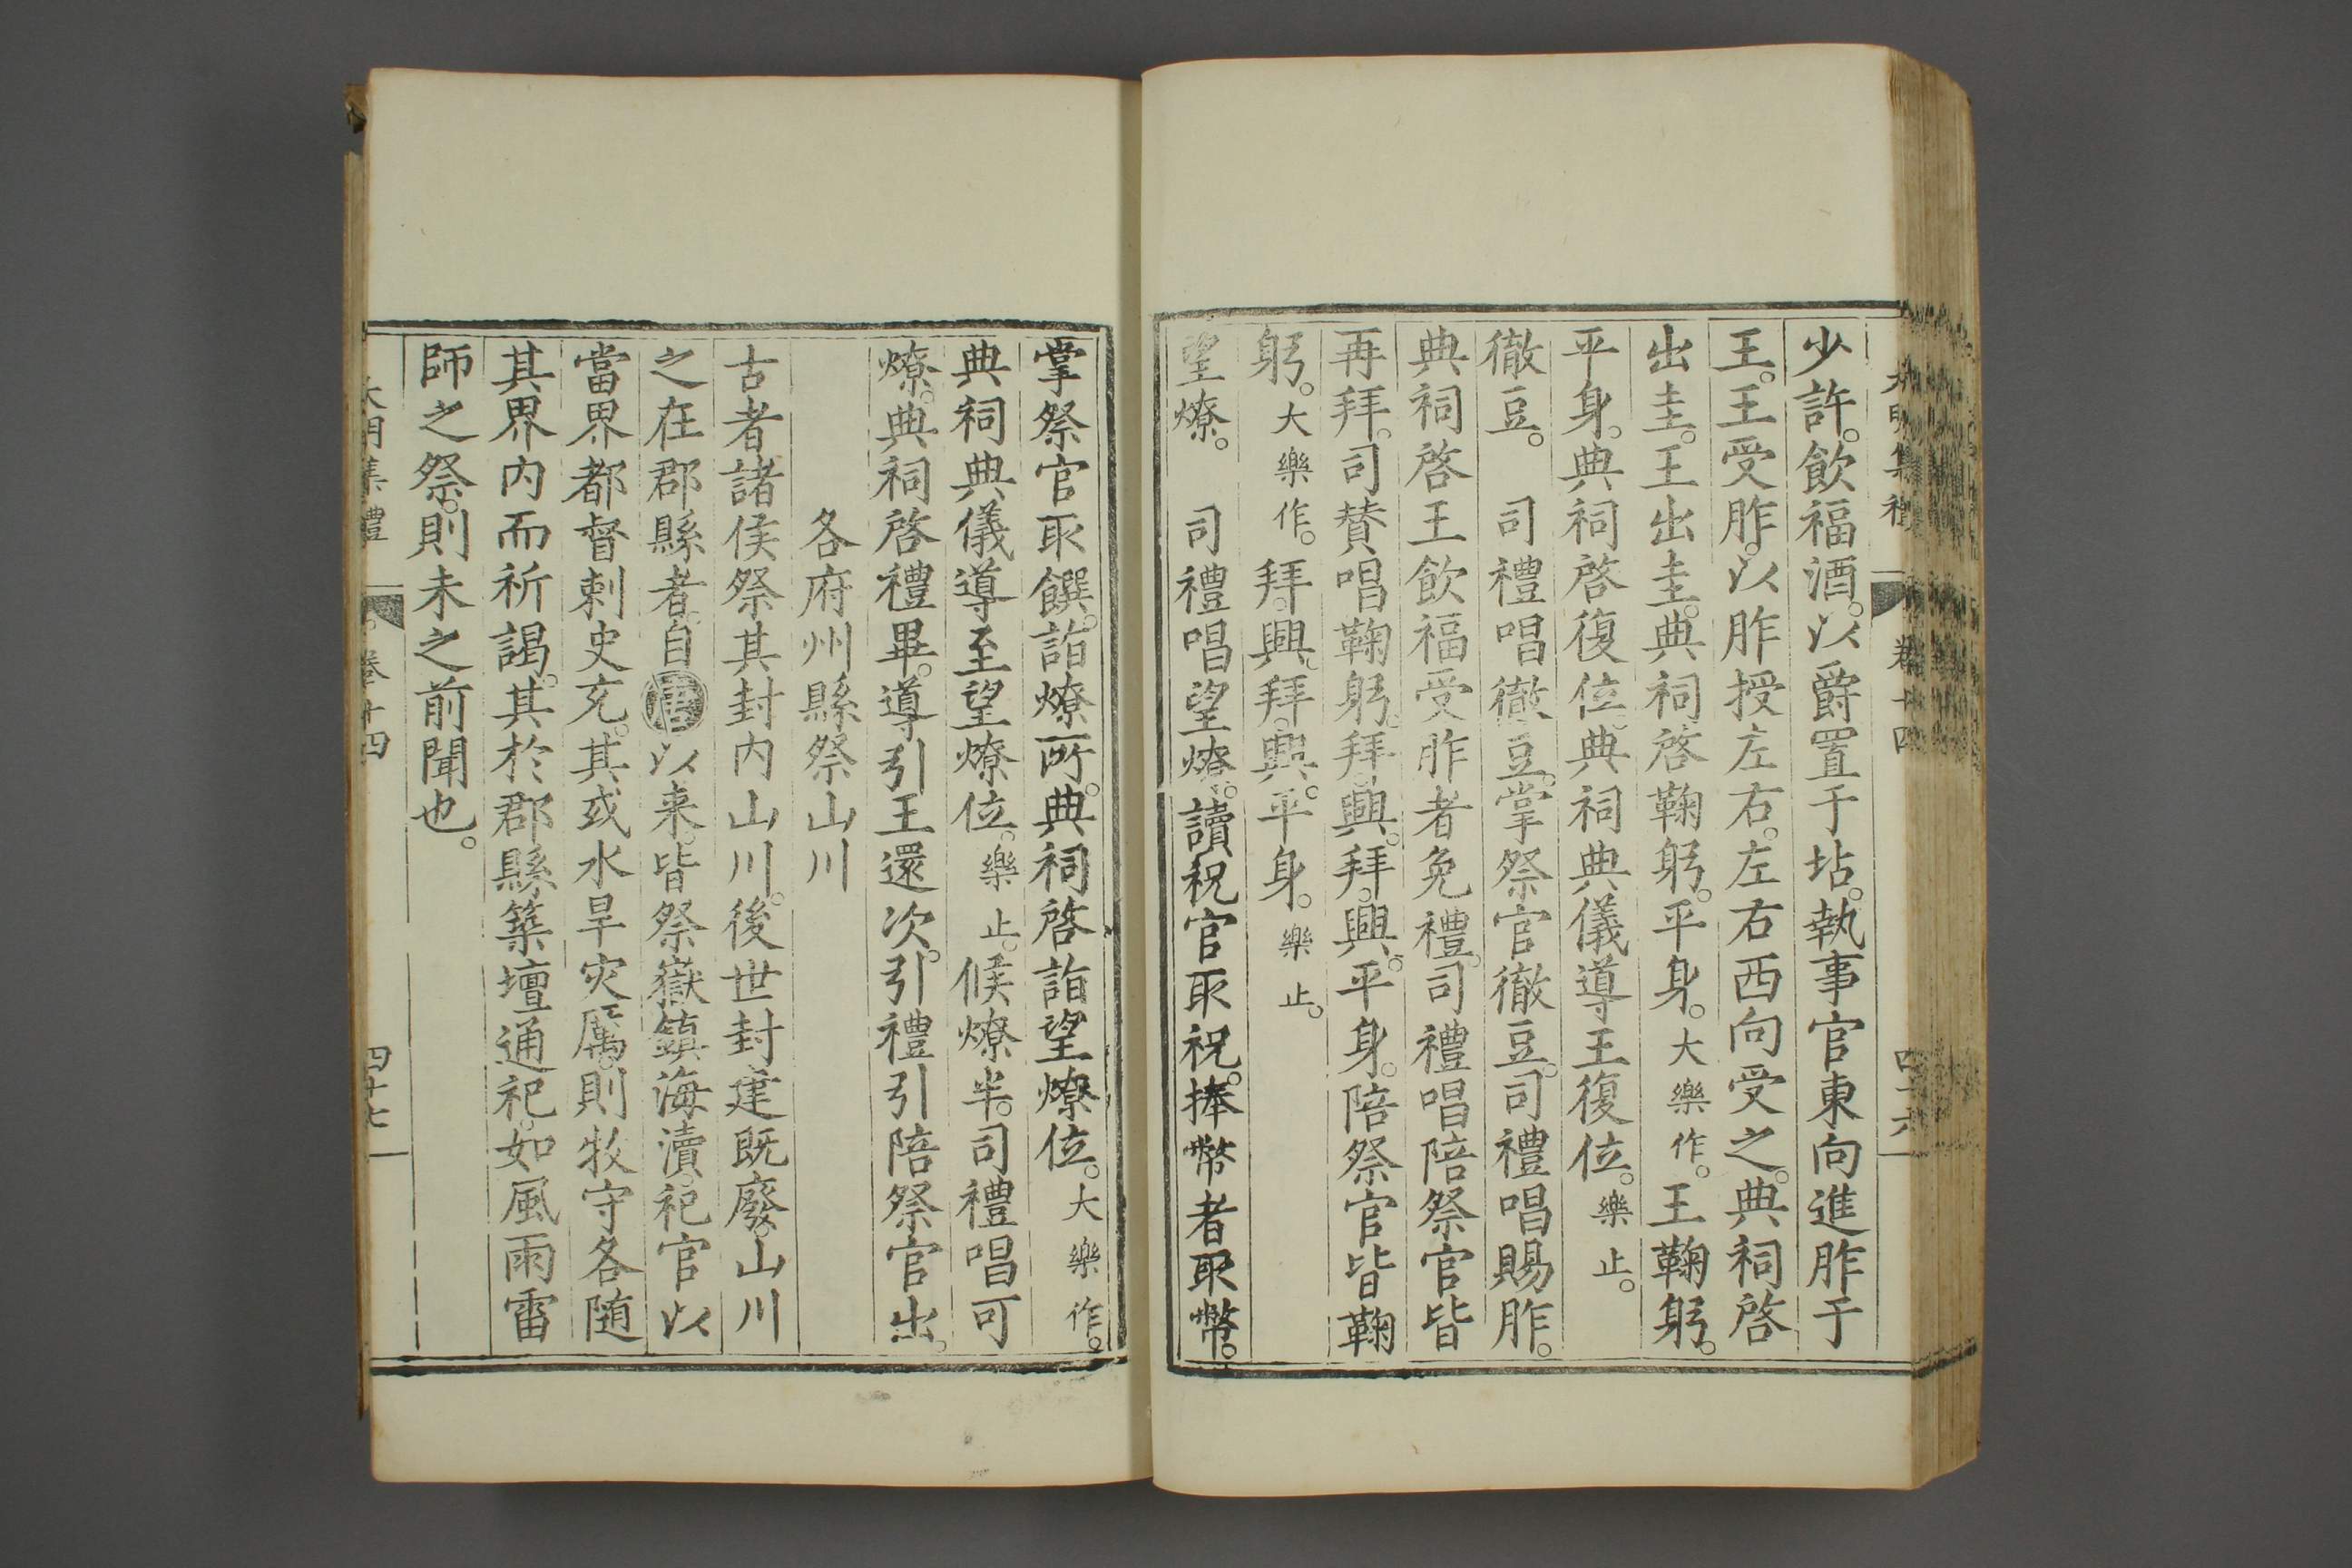 大明集禮 卷十四 四十六
少許。飲福酒。以爵置于坫。執事官東向進胙于
王。王受胙。以胙授左右。左右西向受之。典祠啓
出圭。王出圭。典祠啓鞠躬。平身。大樂作。王鞠躬。
平身。典祠啓復位。典祠典儀導王復位。樂止。
徹豆。 司禮唱徹豆。掌祭官徹豆。司禮唱賜胙。
典祠啓王飲福受胙者免禮。司禮唱陪祭官皆
再拜。司賛唱鞠躬。拜。興。拜。興。平身。陪祭官皆鞠
躬。大樂作。拜。興。拜。興。平身。樂止。
望燎。 司禮唱望燎。讀祝官取祝。捧幣者取幣。
掌祭官取饌。詣燎所。典祠啓詣望燎位。大樂作。
典祠典儀導至望燎位。樂止。候燎半。司禮唱可
燎。典祠啓禮畢。導引王還次。引禮引陪祭官出。
各府州縣祭山川
古者諸侯祭其封内山川。後世封建既廢。山川
之在郡縣者。自唐以来。皆祭嶽鎮海瀆。祀官以
當界都督剌史充。其或水旱灾厲。則牧守各随
其界内而祈謁。其於郡縣築壇通祀。如風雨雷
師之祭。則未之前聞也。
大明集禮 卷十四 四十七